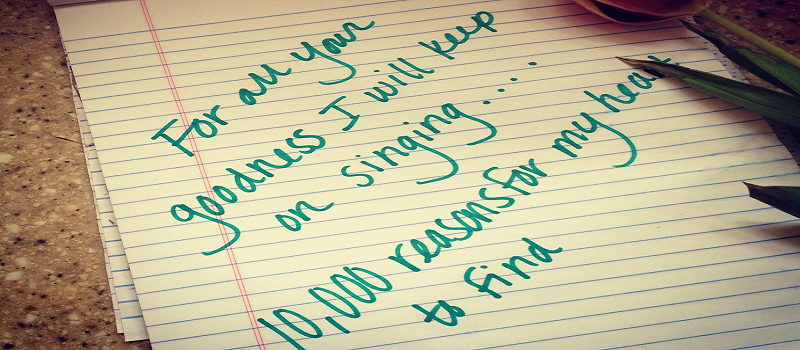 For all your
goodness I will keep
on singing....
10,000 reasons for my heart
to find